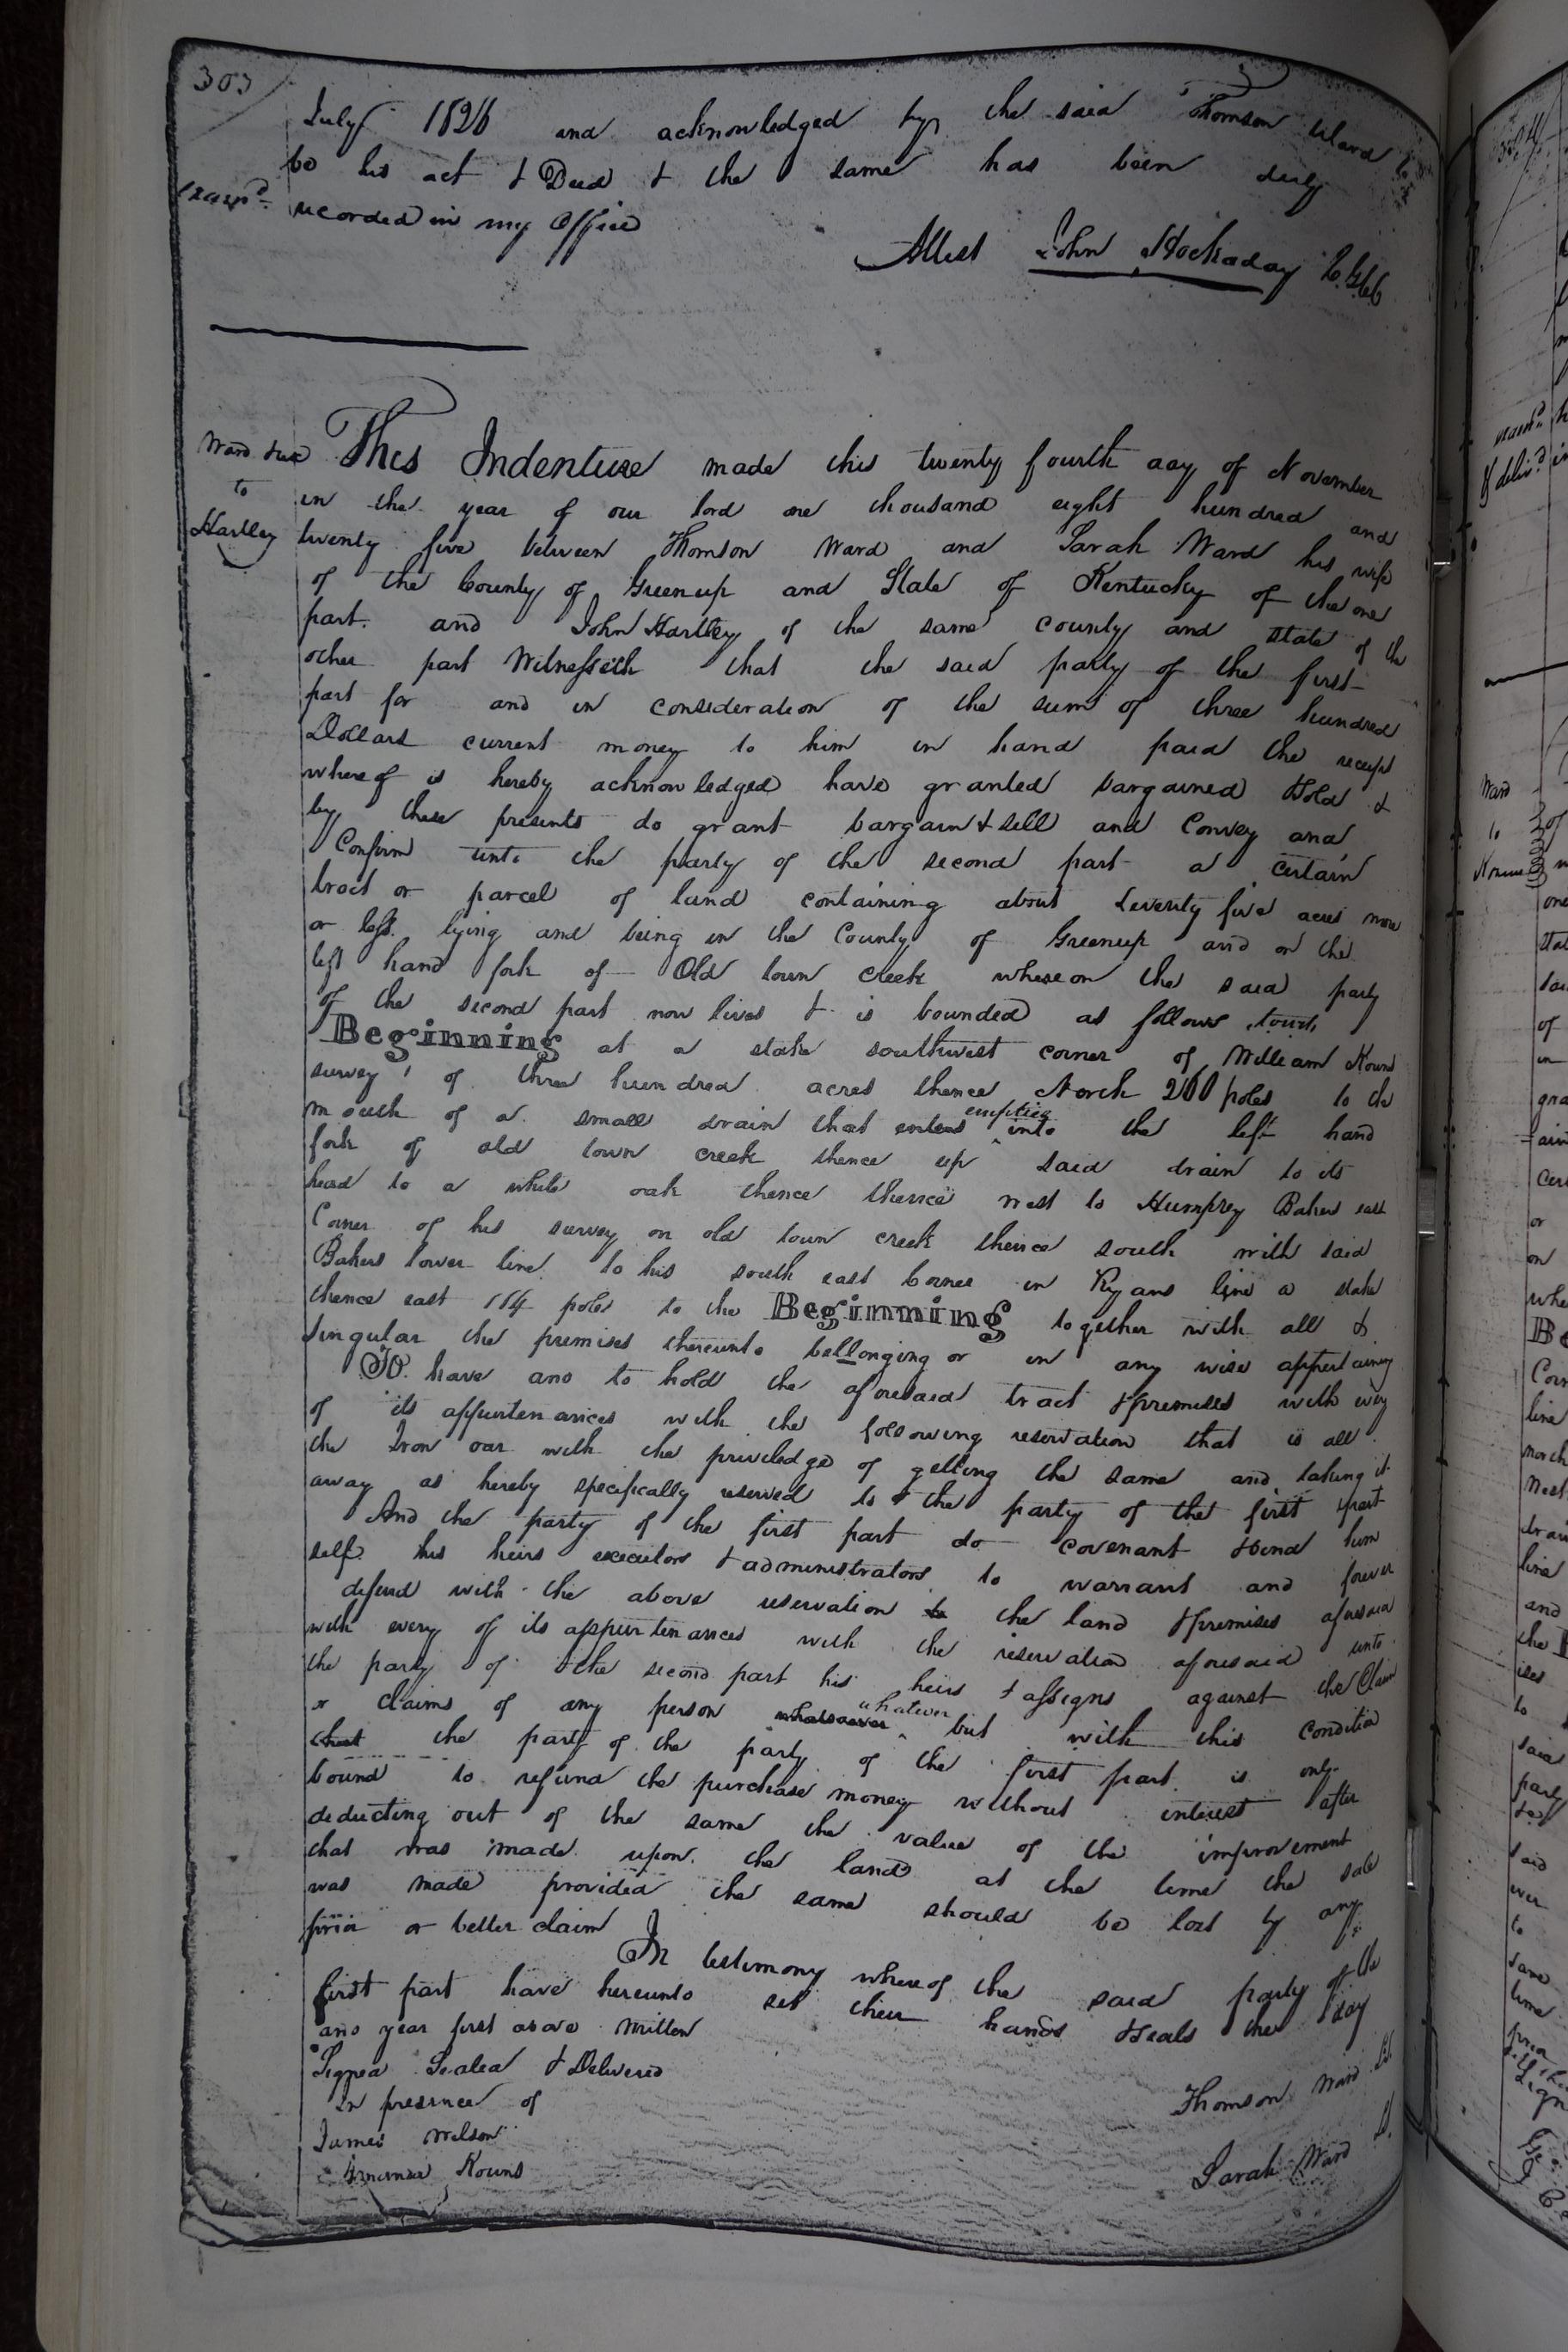 303
July 1826 and acknowledged by the said Thomson Ward to
be his act & Deed & the same has been duly
recorded in my Office
Attest John Hockaday C.G.C.C
Ward &ux
to
Hartley
This Indenture made this twenty fourth day of November
in the year of our lord one thousand eight hundred and
twenty five between Thomson Ward and Sarah Ward his wife
of the County of Greenup and State of Kentucky of the one
part. and John Hartley of the same county and state of the
other part Witnesseth that the said party of the first
part for and in consideration of the sum of three hundred
Dollars current money to him in hand paid the receipt
whereof is hereby acknowledged have granted bargained &sold &
by these presents do grant bargain & sell and Convey and
Confirm unto the party of the second part a certain
tract or parcel of land containing about Seventy five acres more
or less. lying and being in the County of Greenup and on the
left hand fork of Old town Creek whereon the said party
of the second part now lives & is bounded as follows towit,
Beginning at a stake southwest corner of William Kouns
survey of three hundred acres thence North 260 poles to the
mouth of a small drain that enters empties into the left hand
fork of old town creek thence up said drain to its
head to a white oak thence thence west to Humphrey Bakers east
Corner of his survey on old town creek thence south with said
Bakers lower line to his south east Corner in Ryans line a stake
thence east 114 poles to the Beginning together with all &
singular the premises thereunto bellonging or in any wise appertaining
To have and to hold the aforesaid tract &premises with evry
of its appurtenances with the following reservation that is all
the Iron oar with the priviledge of getting the same and taking it
away as hereby specifically reserved to the party of the first part
And the party of the first part do covenant &bind him
self his heirs executors & administrators to warrant and forever
defend with the above reservation to the land &premises aforesaid
with every of its appurtenances with the reservation aforesaid unto
the party of the second part his heirs & assigns against the Claim
or claims of any person whatsoever whatever but with this Condition
that the party of the party of the first part is only
bound to refund the purchase money without interest after
deducting out of the same the value of the improvement
that was made upon the land at the time the sale
was made provided the same should be lost by any
prior or better claim
In testimony whereof the said party of the
first part have hereunto set their hands &seals the day
and year first above written
Signed Sealed & Delivered
in presence of
James Wilson
Kouns
Thomson Ward
Sarah Ward
Ward
to